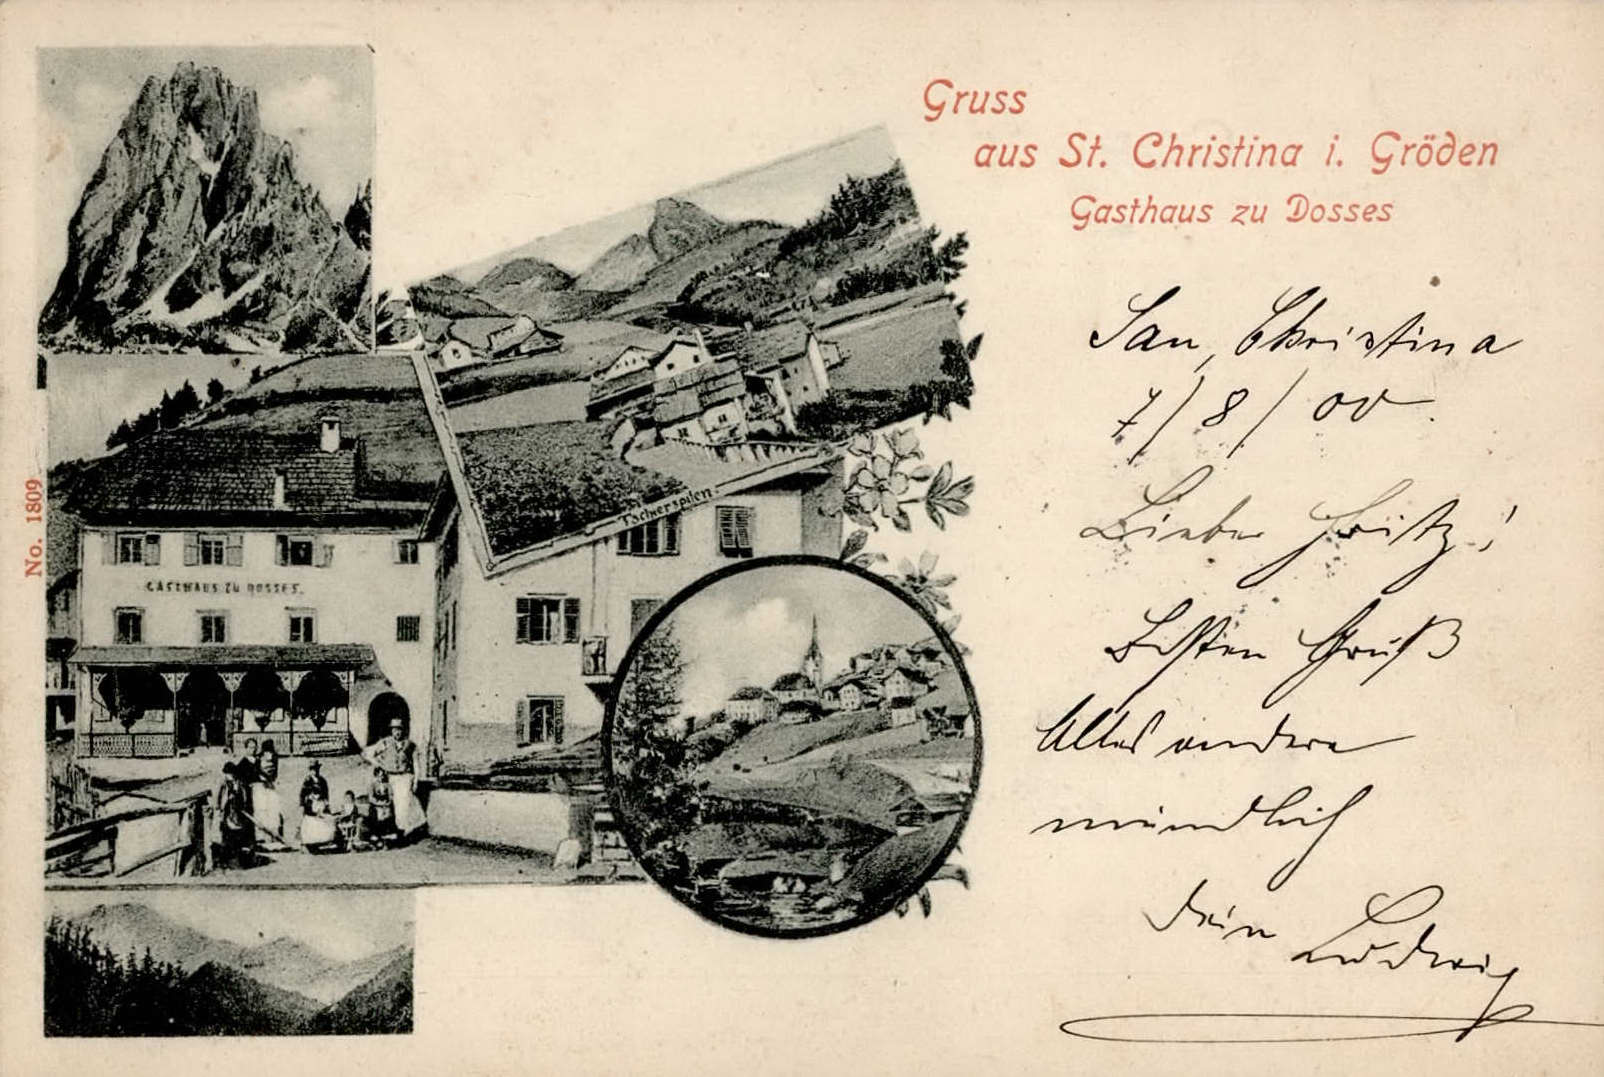 Gruss
aus St. Christina i. Gröden
Gasthaus zu Dosses
No. 1809
GASTHAUS ZU DOSSES.
Tschierspilen
San, Christina
7/8/00.
Lieber Fritz!
Besten Gruß
Alles andere
mündlich
Dein Ludwig